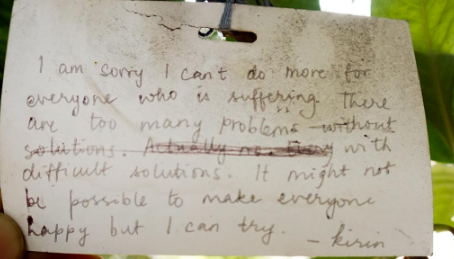 I am sorry I can't do more for
everyone who is suffering. There
are too many problems without
solutions. Actually no. Every with
difficult solutions. It might not
be possible to make everyone
happy but I can try.
- kirin